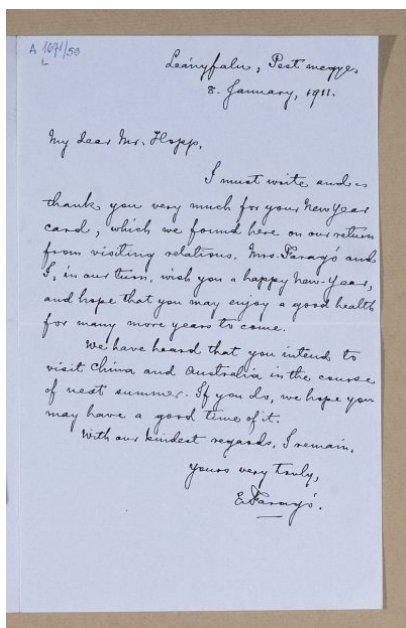 A 1671/53
L
Leányfalu, Pest megye,
8. January, 1911.
My dear Mr. Hopp.
I must write and
thank you very much for your New Year
card, which we found here on our return
from visiting relations. Mrs. Faragó and
I, in our turn, wish you a happy New-Year,
and hope that you may enjoy a good health
for many more years to come.
We have heard that you intend to
visit China and Australia in the course
of next summer. If you do, we hope you
may have a good time of it.
With our kindest regards, I remain,
Yours very truly,
E Faragó.